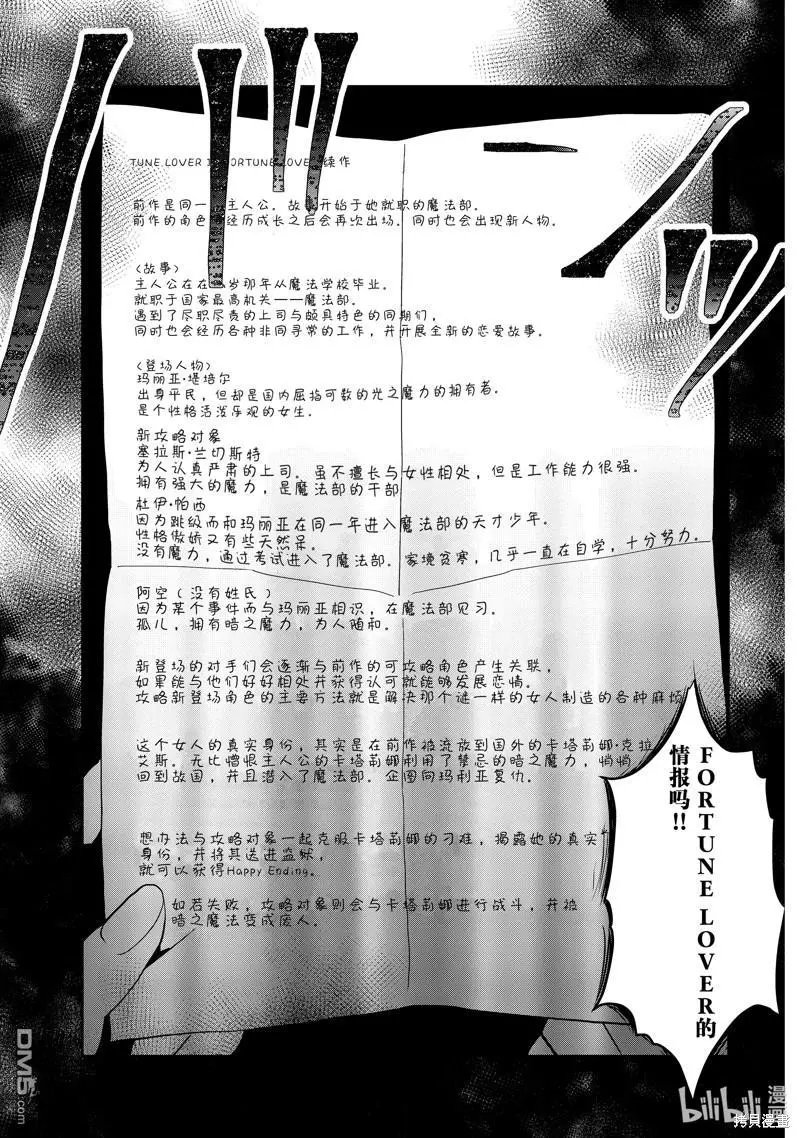 TUNE LOVER  FORTUNE LOVE 续作
前作是同一 主人公。故事开始于她就职的魔法部。
前作的角色 经历成长之后会再次出场。同时也会出现新人物。
〈故事〉
主人公在在 岁那年从魔法学校毕业。
就职于国家最高机关——魔法部。
遇到了尽职尽责的上司与颇具特色的同期们，
同时也会经历各种非同寻常的工作，并开展全新的恋爱故事。
〈登场人物〉
玛丽亚·堪培尔
出身平民，但却是国内屈指可数的光之魔力的拥有者。
是个性格活泼乐观的女生。
新攻略对象
塞拉斯·兰切斯特
为人认真严肃的上司。虽不擅长与女性相处，但是工作能力很强。
拥有强大的魔力，是魔法部的干部
杜伊·帕西
因为跳级而和玛丽亚在同一年进入魔法部的天才少年。
性格傲娇又有些天然呆。
没有魔力，通过考试进入了魔法部。家境贫寒，几乎一直在自学，十分努力。
阿空（没有姓氏）
因为某个事件而与玛丽亚相识，在魔法部见习。
孤儿，拥有暗之魔力，为人随和。
新登场的对手们会逐渐与前作的可攻略角色产生关联，
如果能与他们好好相处并获得认可就能够发展恋情。
攻略新登场角色的主要方法就是解决那个谜一样的女人制造的各种麻烦
这个女人的真实身份，其实是在前作被流放到国外的卡塔莉娜·克拉
艾斯。无比憎恨主人公的卡塔莉娜利用了禁忌的暗之魔力，悄悄
回到故国，并且潜入了魔法部。企图向玛利亚复仇。
想办法与攻略对象一起克服卡塔莉娜的刁难，揭露她的真实
身份，并将其送进监狱，
就可以获得Happy Ending。
如若失败，攻略对象则会与卡塔莉娜进行战斗，并被
暗之魔法变成废人。
FORTUNE LOVER的
情报吗!!
DM5.com
bilibili 漫画
拷貝漫畫